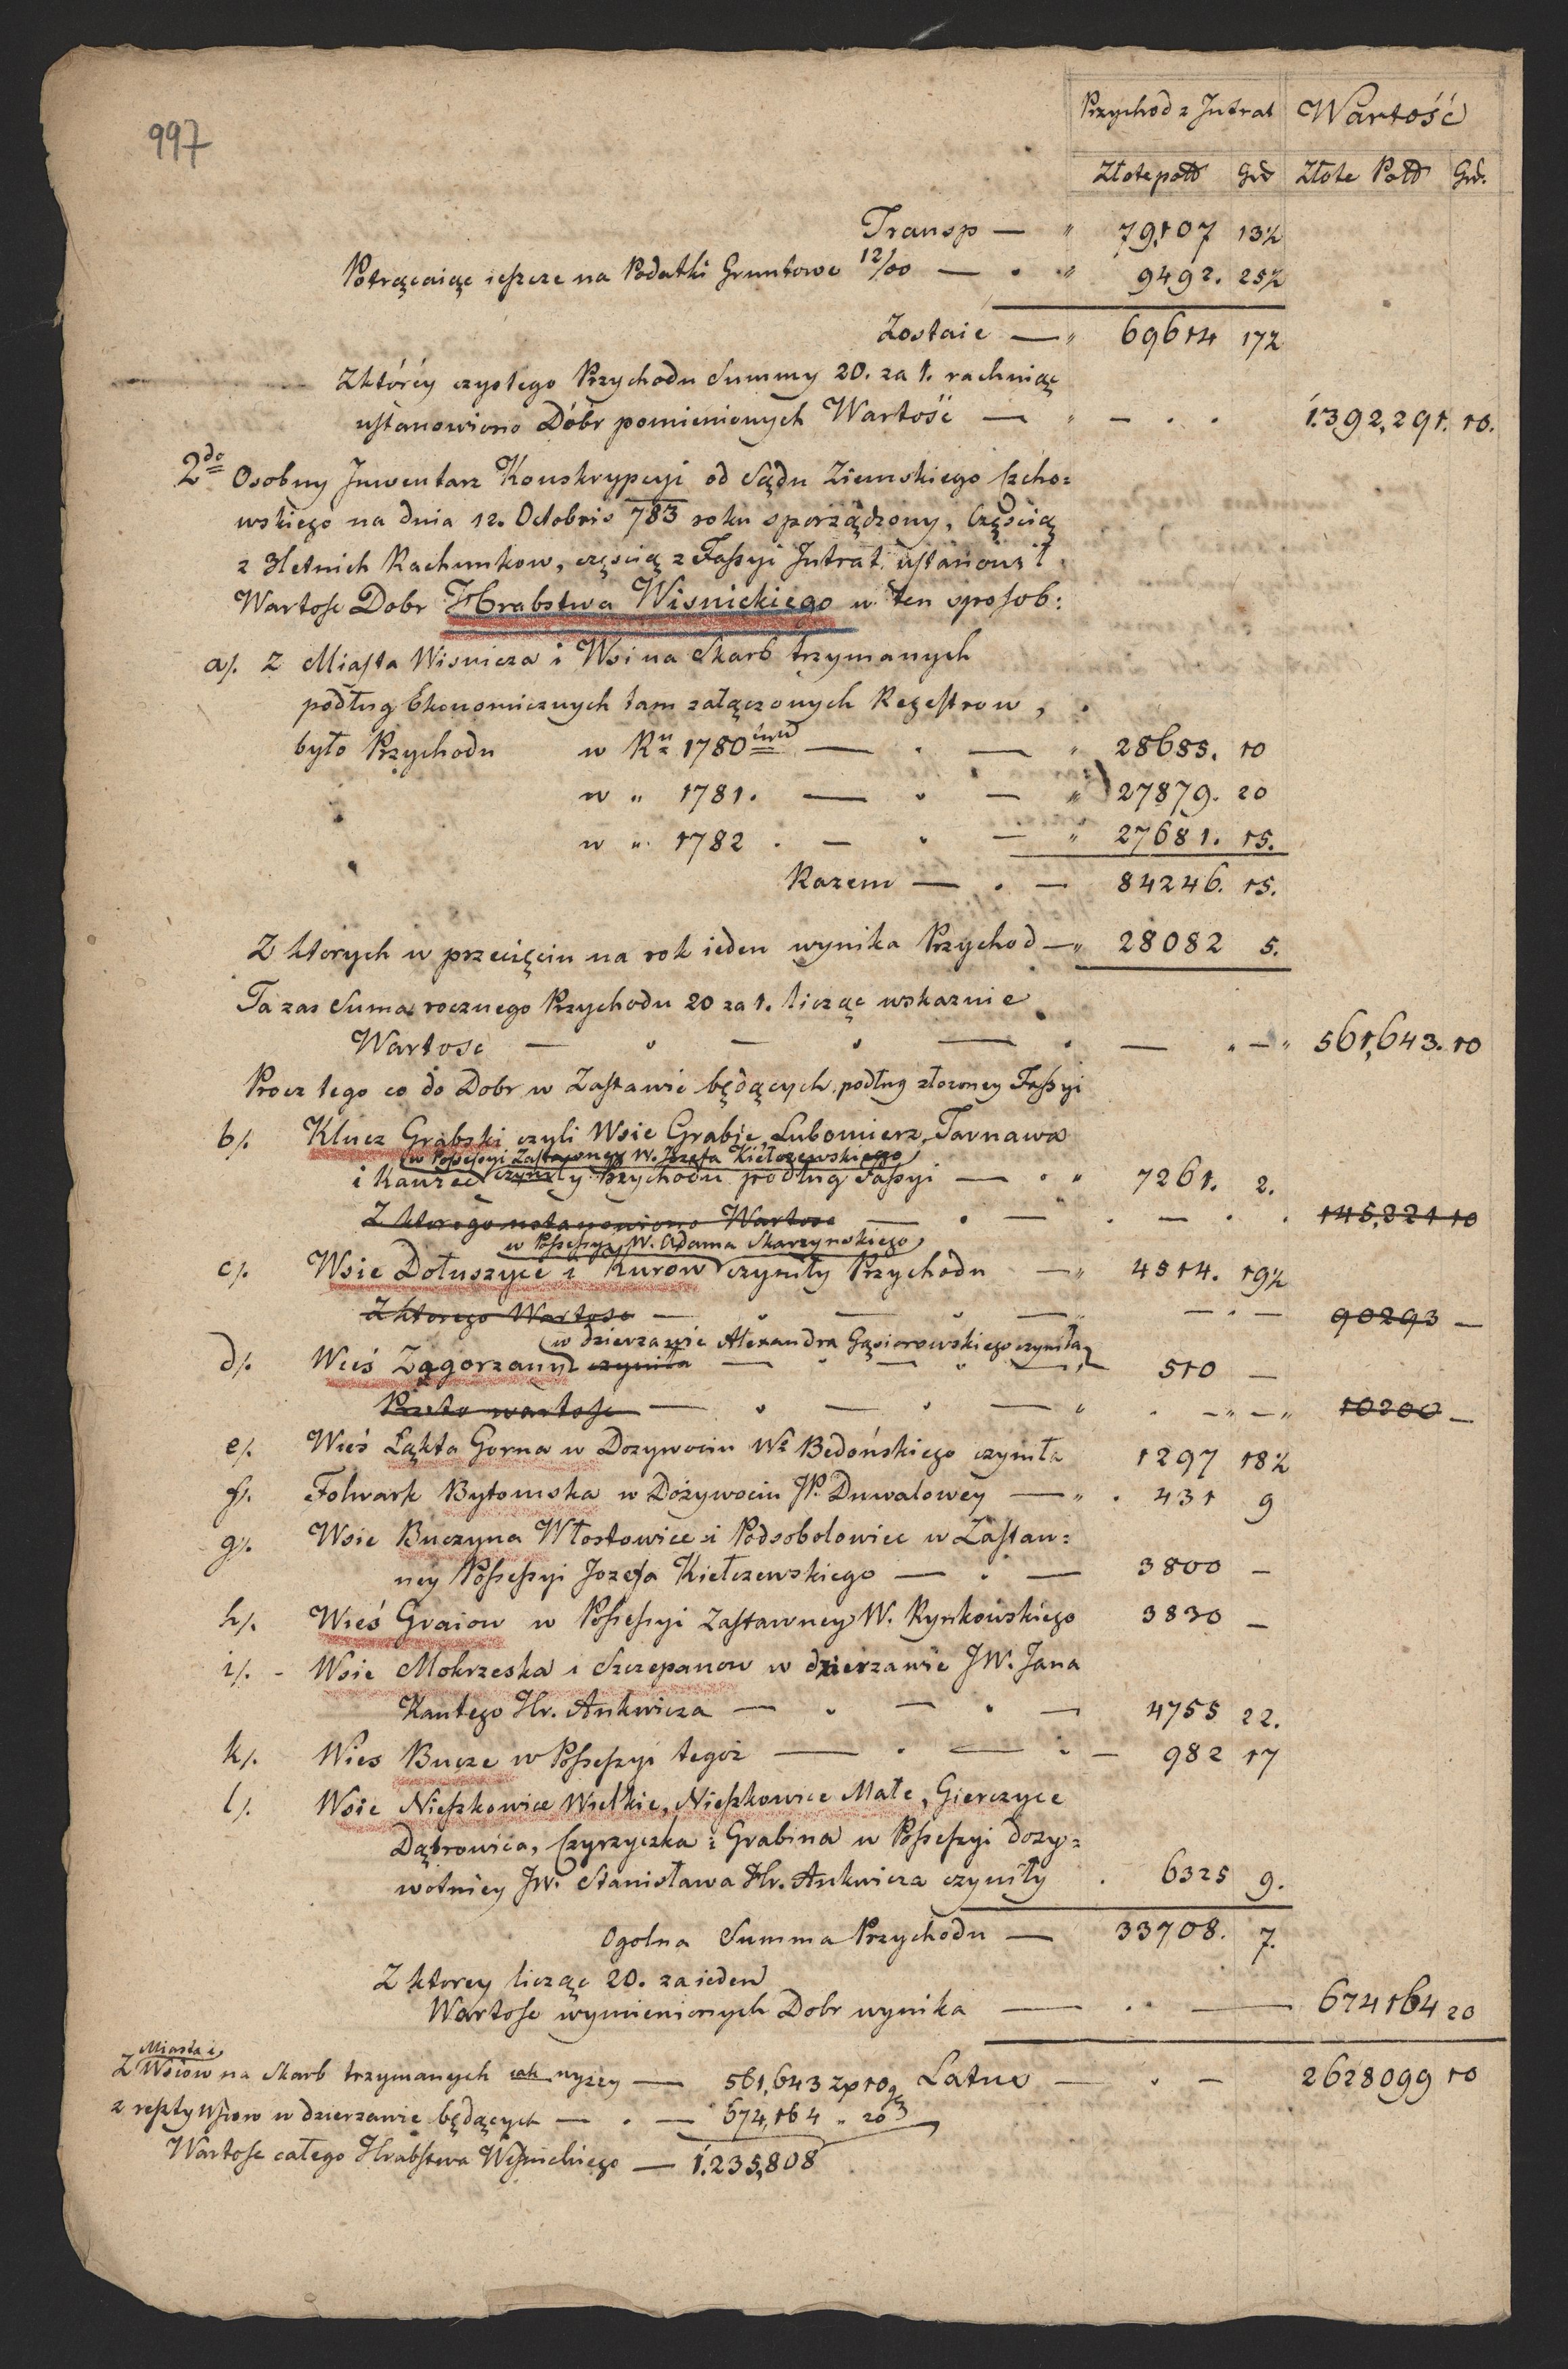 997
Przychod z Intrat Wartość
Złote pold Grd Złote Pold Grd.
Transp — " 79,107 13½
Potrącaiąc ieszcze na Podatki Gruntowe 12/00 — . " 9492. 25½
Zostaie — " 69614 17½
Z któréy czystego Przychodu Summy 20. za 1. rachuiąc
ustanowiono Dóbr pomienionych Wartość — " — . . 1.392,291. 10.
2do Osobny Inwentarz Konskrypcyi od Sądu Ziemskiego Czcho=
wskiego na dnia 12. Octobris 783 roku sporządzony, Częścią
z 3letnich Rachunkow, częścią z Fassyi Intrat ustanowił
Wartosc Dobr Hrabstwa Wisnickiego w ten sposob:
a/. Z Miasta Wisnicza i Wsi na Skarb trzymanych
podług Ekonomicznych tam załączonych Regestrow,
było Przychodu w Ru 1780 — . — " 28685. 10
w " 1781. — . — " 27879. 20
w " 1782 . — . — " 27681. 15.
Razem — . — 84246. 15.
Z ktorych w przecięciu na rok ieden wynika Przychod — " 28082 5.
Ta zas Suma rocznego Przychodu 20 za 1. licząc wskazuie
Wartosc — . — . — . — . — " 561,643. 10
Procz tego co do Dobr w Zastawie będących podług złozoney Fassyi
b/. Klucz Grabski czyli Wsie Grabie, Lubomierz, Tarnawa
w Possessyi Zastawney W. Jozefa Kiełczewskiego
i Kamzec czyniły Przychodu podług Fassyi — . " 7261. 2.
Z ktorego ustanowiono Wartosc — . — . — . . 145,221 10
w Possessyi W. Adama Skarzynskiego
c/. Wsie Dołuszyce i Kurow czyniły Przychodu — " 4514. 19½
Z ktorego Wartosc — " — " — " — . — 90293 —
w dzierzawie Alexandra Gąsiorowskiego czyniła
d/. Wieś Zagorzany czyniła — . — " — " 510 —
Przeto wartosc — . — . — " . — " — " 10200 —
e/. Wieś Łąkta Gorna w Dozywociu W° Bedońskiego czyniła 1297 18½
f/. Folwark Bytomska w Dożywociu JP. Duwalowey — " . 431 9
g/. Wsie Buczyna Włostowice i Podsobolowice w Zastaw=
ney Possessyi Jozefa Kiełczewskiego — . — 3800 —
h/. Wieś Graiow w Possessyi Zastawney W. Rynkowskiego 3830 —
i/. - Wsie Mokrzeska i Szczepanow w dzierzawie JW. Jana
Kantego Hr. Ankwicza — . — . — 4755 22.
k/. Wies Bucze w Possessyi tegoż — . — : — 982 17
l/. Wsie Nieszkowice Wielkie, Nieszkowice Małe, Gierczyce
Dąbrowica, Czyrzyczka i Grabina w Possessyi dozy=
wotniey JW. Stanisława Hr. Ankwicza czyniły . 6325 9.
Ogolna Summa Przychodu — 33708. 7.
Z ktorey licząc 20. za ieden
Wartosc wymienionych Dobr wynika — . . — 674164 20
Miasta i
Z Wsiow na Skarb trzymanych iak wyzey — 561,643 zp 10 g Latus — . — 2628099 10
z reszty Wsiow w dzierzawie będących — . — 674,164 " 20
Wartosc całego Hrabstwa Wisnickiego — 1.235,808